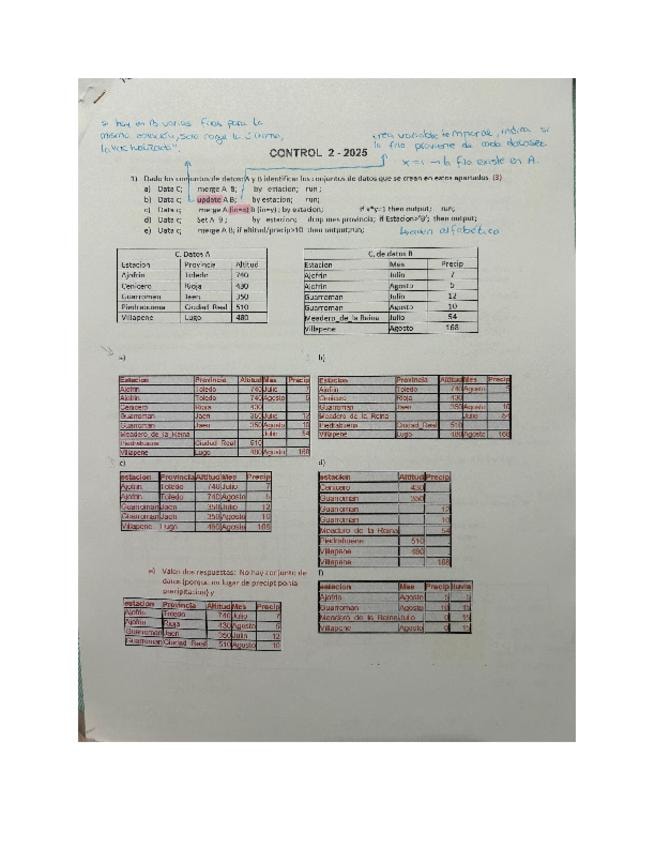 si hay en B varias filas para la
misma estación, solo coge la última,
crea variable temporal, indica si
la fila proviene de cada dataset
x=1 → la fila existe en A.
CONTROL 2 - 2025
1) Dado los conjuntos de datos A y B identificar los conjuntos de datos que se crean en estos apartados. (3)
a) Data C; merge A B; by estacion; run;
b) Data c; update A B; by estacion; run;
c) Data c; merge A (in=x) B (in=y); by estacion; if x*y=1 then output; run;
d) Data c; Set A B; by estacion; drop mes provincia; if Estacion>'B'; then output;
e) Data c; merge A B; if altitud/precip>10 then output;run;
alfabético
C. Datos A
Estacion Provincia Altitud
Ajofrin Toledo 740
Cenicero Rioja 430
Guarroman Jaen 350
Piedrabuena Ciudad_Real 510
Villapene Lugo 480
C. de datos B
Estacion Mes Precip
Ajofrin Julio 7
Ajofrin Agosto 5
Guarroman Julio 12
Guarroman Agosto 10
Meadero_de_la Reina Julio 54
Villapene Agosto 168
a)
Estacion Provincia Altitud Mes Precip
Ajofrin Toledo 740 Julio 7
Ajofrin Toledo 740 Agosto 5
Cenicero Rioja 430
Guarroman Jaen 350 Julio 12
Guarroman Jaen 350 Agosto 10
Meadero_de_la_Reina Julio 54
Piedrabuena Ciudad_Real 510
Villapene Lugo 480 Agosto 168
b)
Estacion Provincia Altitud Mes Precip
Ajofrin Toledo 740 Agosto 5
Cenicero Rioja 430
Guarroman Jaen 350 Agosto 10
Meadero_de_la_Reina Julio 54
Piedrabuena Ciudad_Real 510
Villapene Lugo 480 Agosto 168
c)
estacion Provincia Altitud Mes Precip
Ajofrin Toledo 740 Julio 7
Ajofrin Toledo 740 Agosto 5
Guarroman Jaen 350 Julio 12
Guarroman Jaen 350 Agosto 10
Villapene Lugo 480 Agosto 168
d)
estacion Altitud Precip
Cenicero 430
Guarroman 350
Guarroman 12
Guarroman 10
Meadero_de_la_Reina 54
Piedrabuena 510
Villapene 480
Villapene 168
e) Valen dos respuestas: No hay conjunto de
datos (porque en lugar de precipt ponía
precipitacion) y
estacion Provincia Altitud Mes Precip
Ajofrin Toledo 740 Julio 7
Ajofrin Rioja 430 Agosto 5
Guarroman Jaen 350 Julio 12
Guarroman Ciudad_Real 510 Agosto 10
f)
estacion Mes Precip lluvia
Ajofrin Agosto 5
Guarroman Agosto 10 15
Meadero_de_la_Reina Julio 0 15
Villapene Agosto 0 15